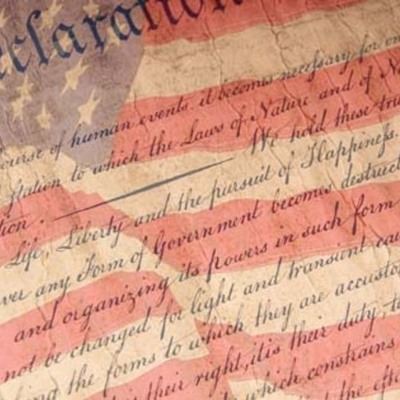 eclaration
ourse of human events, it becomes necessary for on
Station to which the Laws of Nature and of Na
We hold these tru
tion.
Life, Liberty and the pursuit of Happiness.
ver any Form of Government becomes destruct
and organizing its powers in such form
not be changed for light and transient cau
ing the forms to which they are accusto
their right, it is their duty, to
which constrains